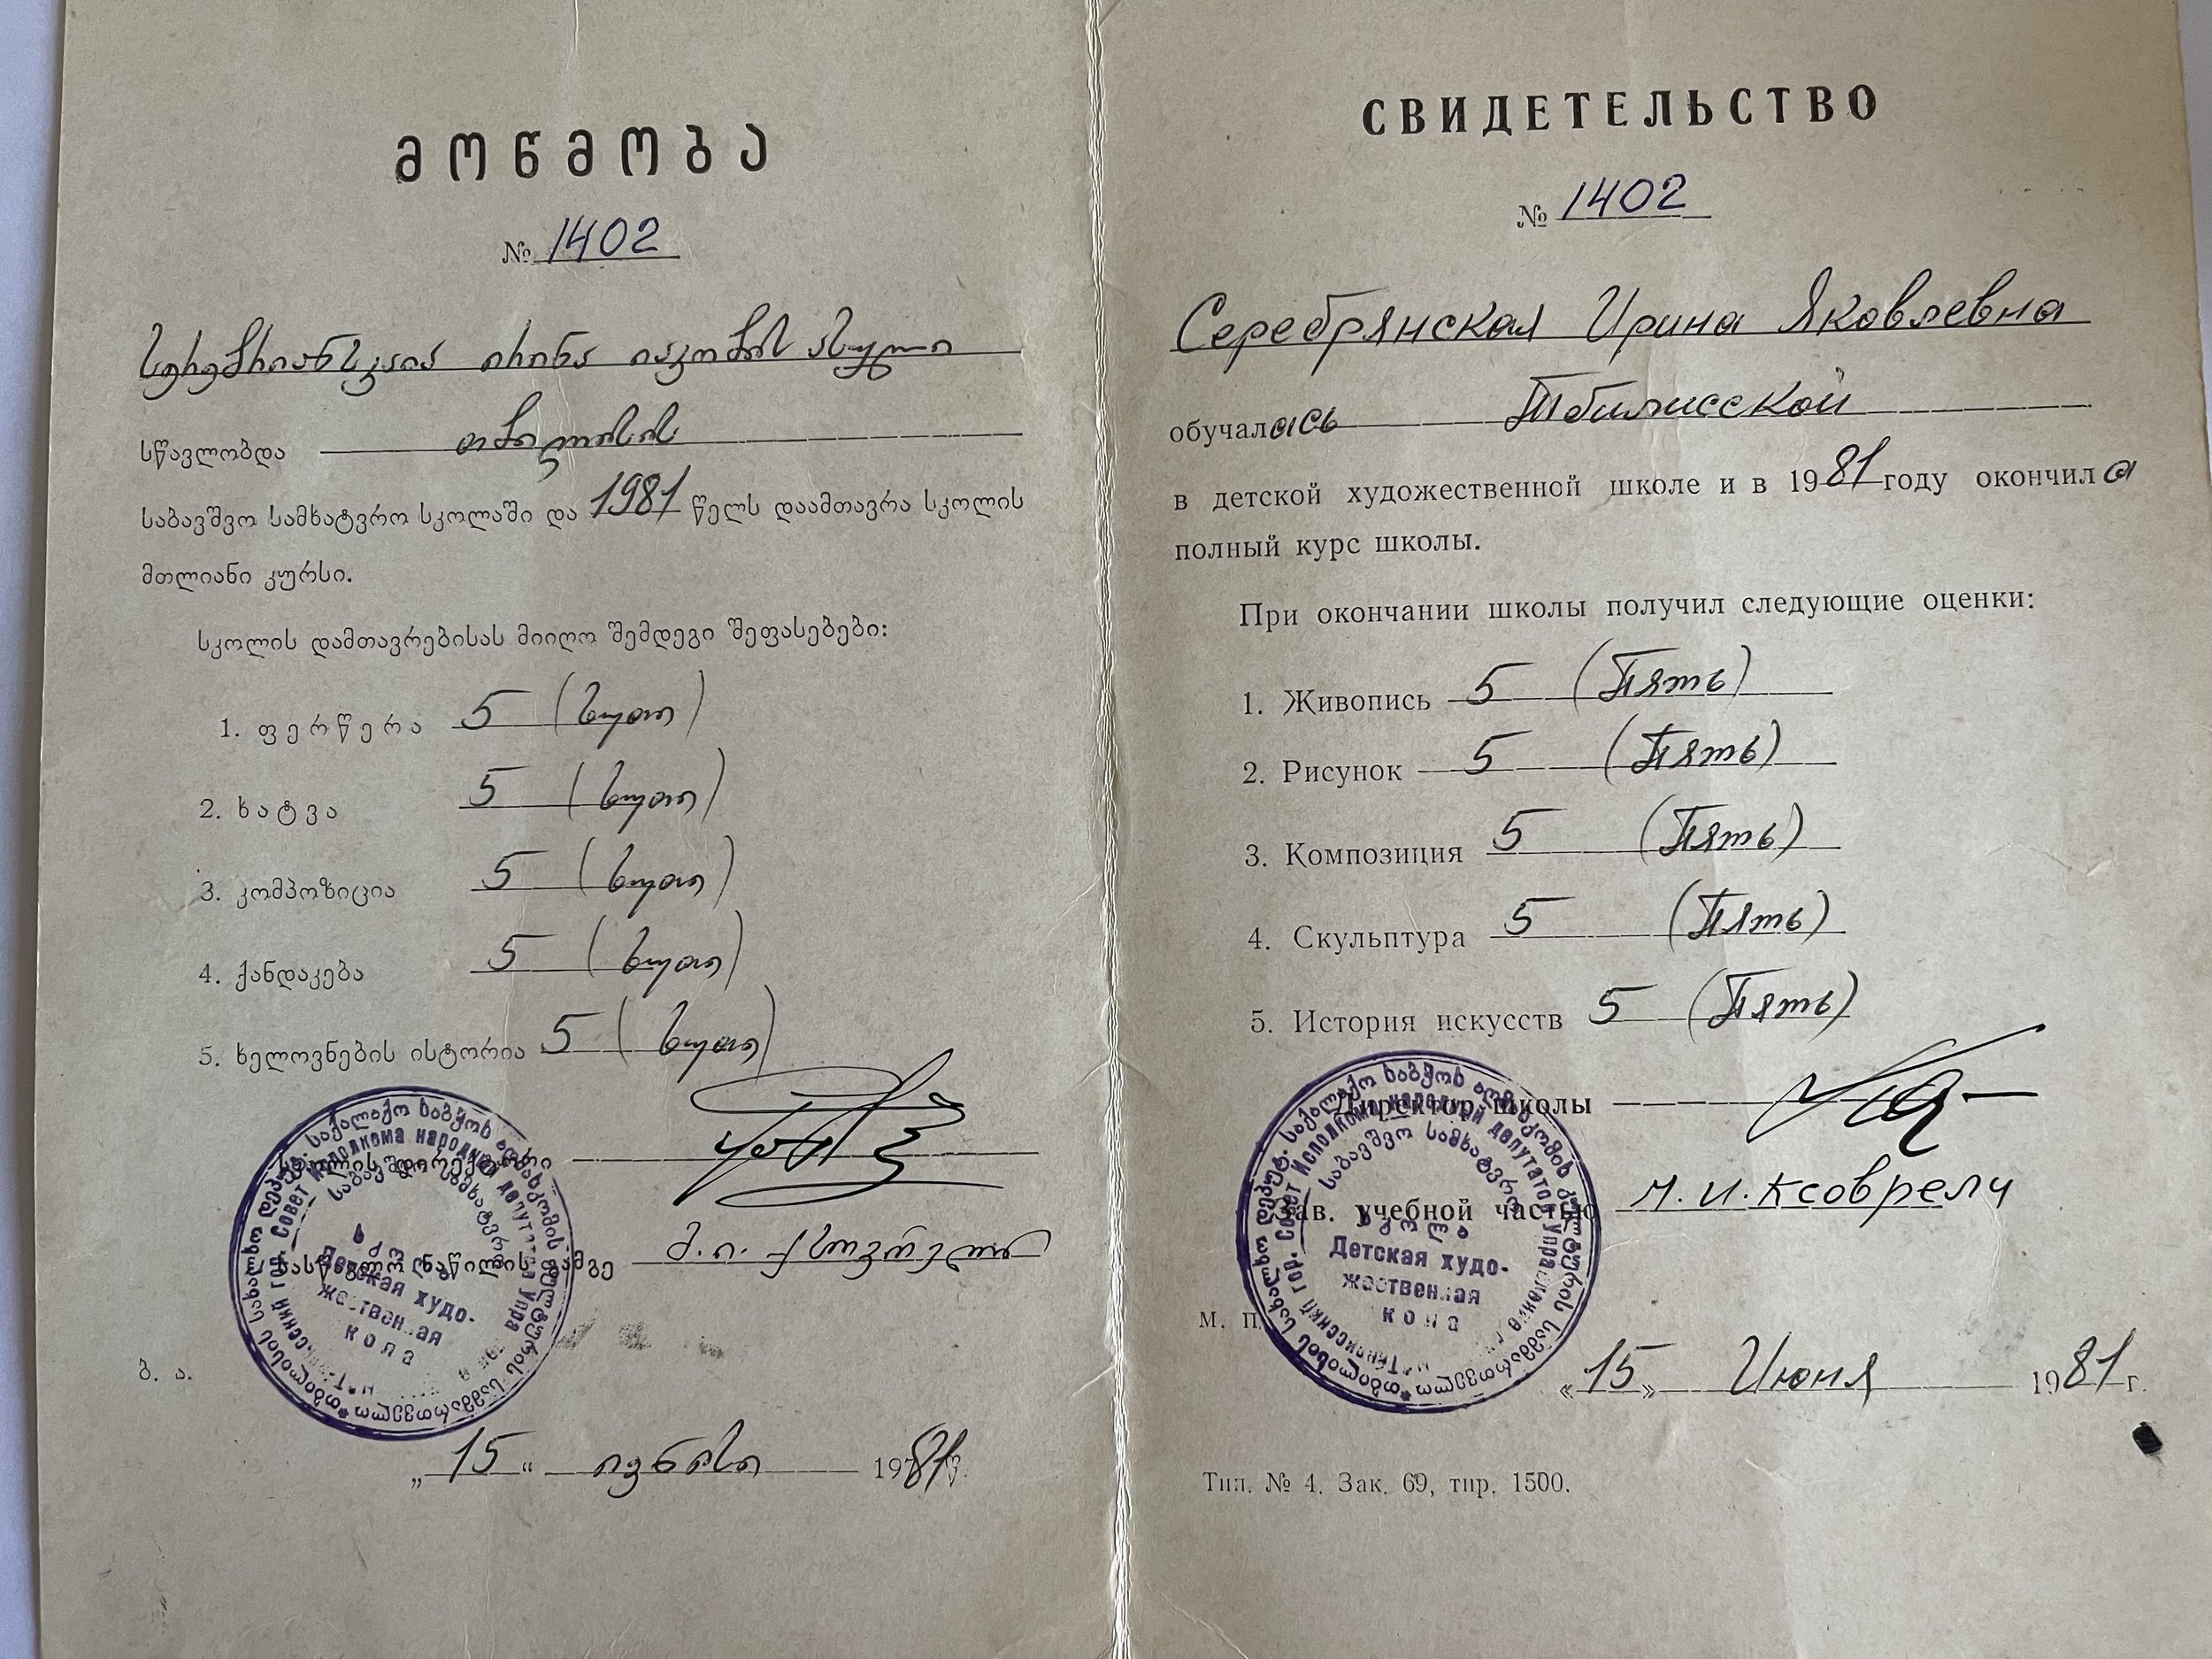 მოწმობა
№ 1402
სერებრიანსკაია ირინა იაკობის ასული
სწავლობდა თბილისის
საბავშვო სამხატვრო სკოლაში და 1981 წელს დაამთავრა სკოლის
მთლიანი კურსი.
სკოლის დამთავრებისას მიიღო შემდეგი შეფასებები:
1. ფერწერა 5 (ხუთი)
2. ხატვა 5 (ხუთი)
3. კომპოზიცია 5 (ხუთი)
4. ქანდაკება 5 (ხუთი)
5. ხელოვნების ისტორია 5 (ხუთი)
სკოლის დირექტორი
სასწავლო ნაწილის გამგე მ. ი. ქსოვრელი
ბ. ა.
„15“ ივნისი 1981 წ.
СВИДЕТЕЛЬСТВО
№ 1402
Серебрянская Ирина Яковлевна
обучалась Тбилисской
в детской художественной школе и в 1981 году окончила
полный курс школы.
При окончании школы получил следующие оценки:
1. Живопись 5 (Пять)
2. Рисунок 5 (Пять)
3. Композиция 5 (Пять)
4. Скульптура 5 (Пять)
5. История искусств 5 (Пять)
Директор школы
Зав. учебной частью М. И. Ксоврели
Детская худо-
жественная
м. п.
«15» Июня 1981 г.
Тип. № 4. Зак. 69, тир. 1500.